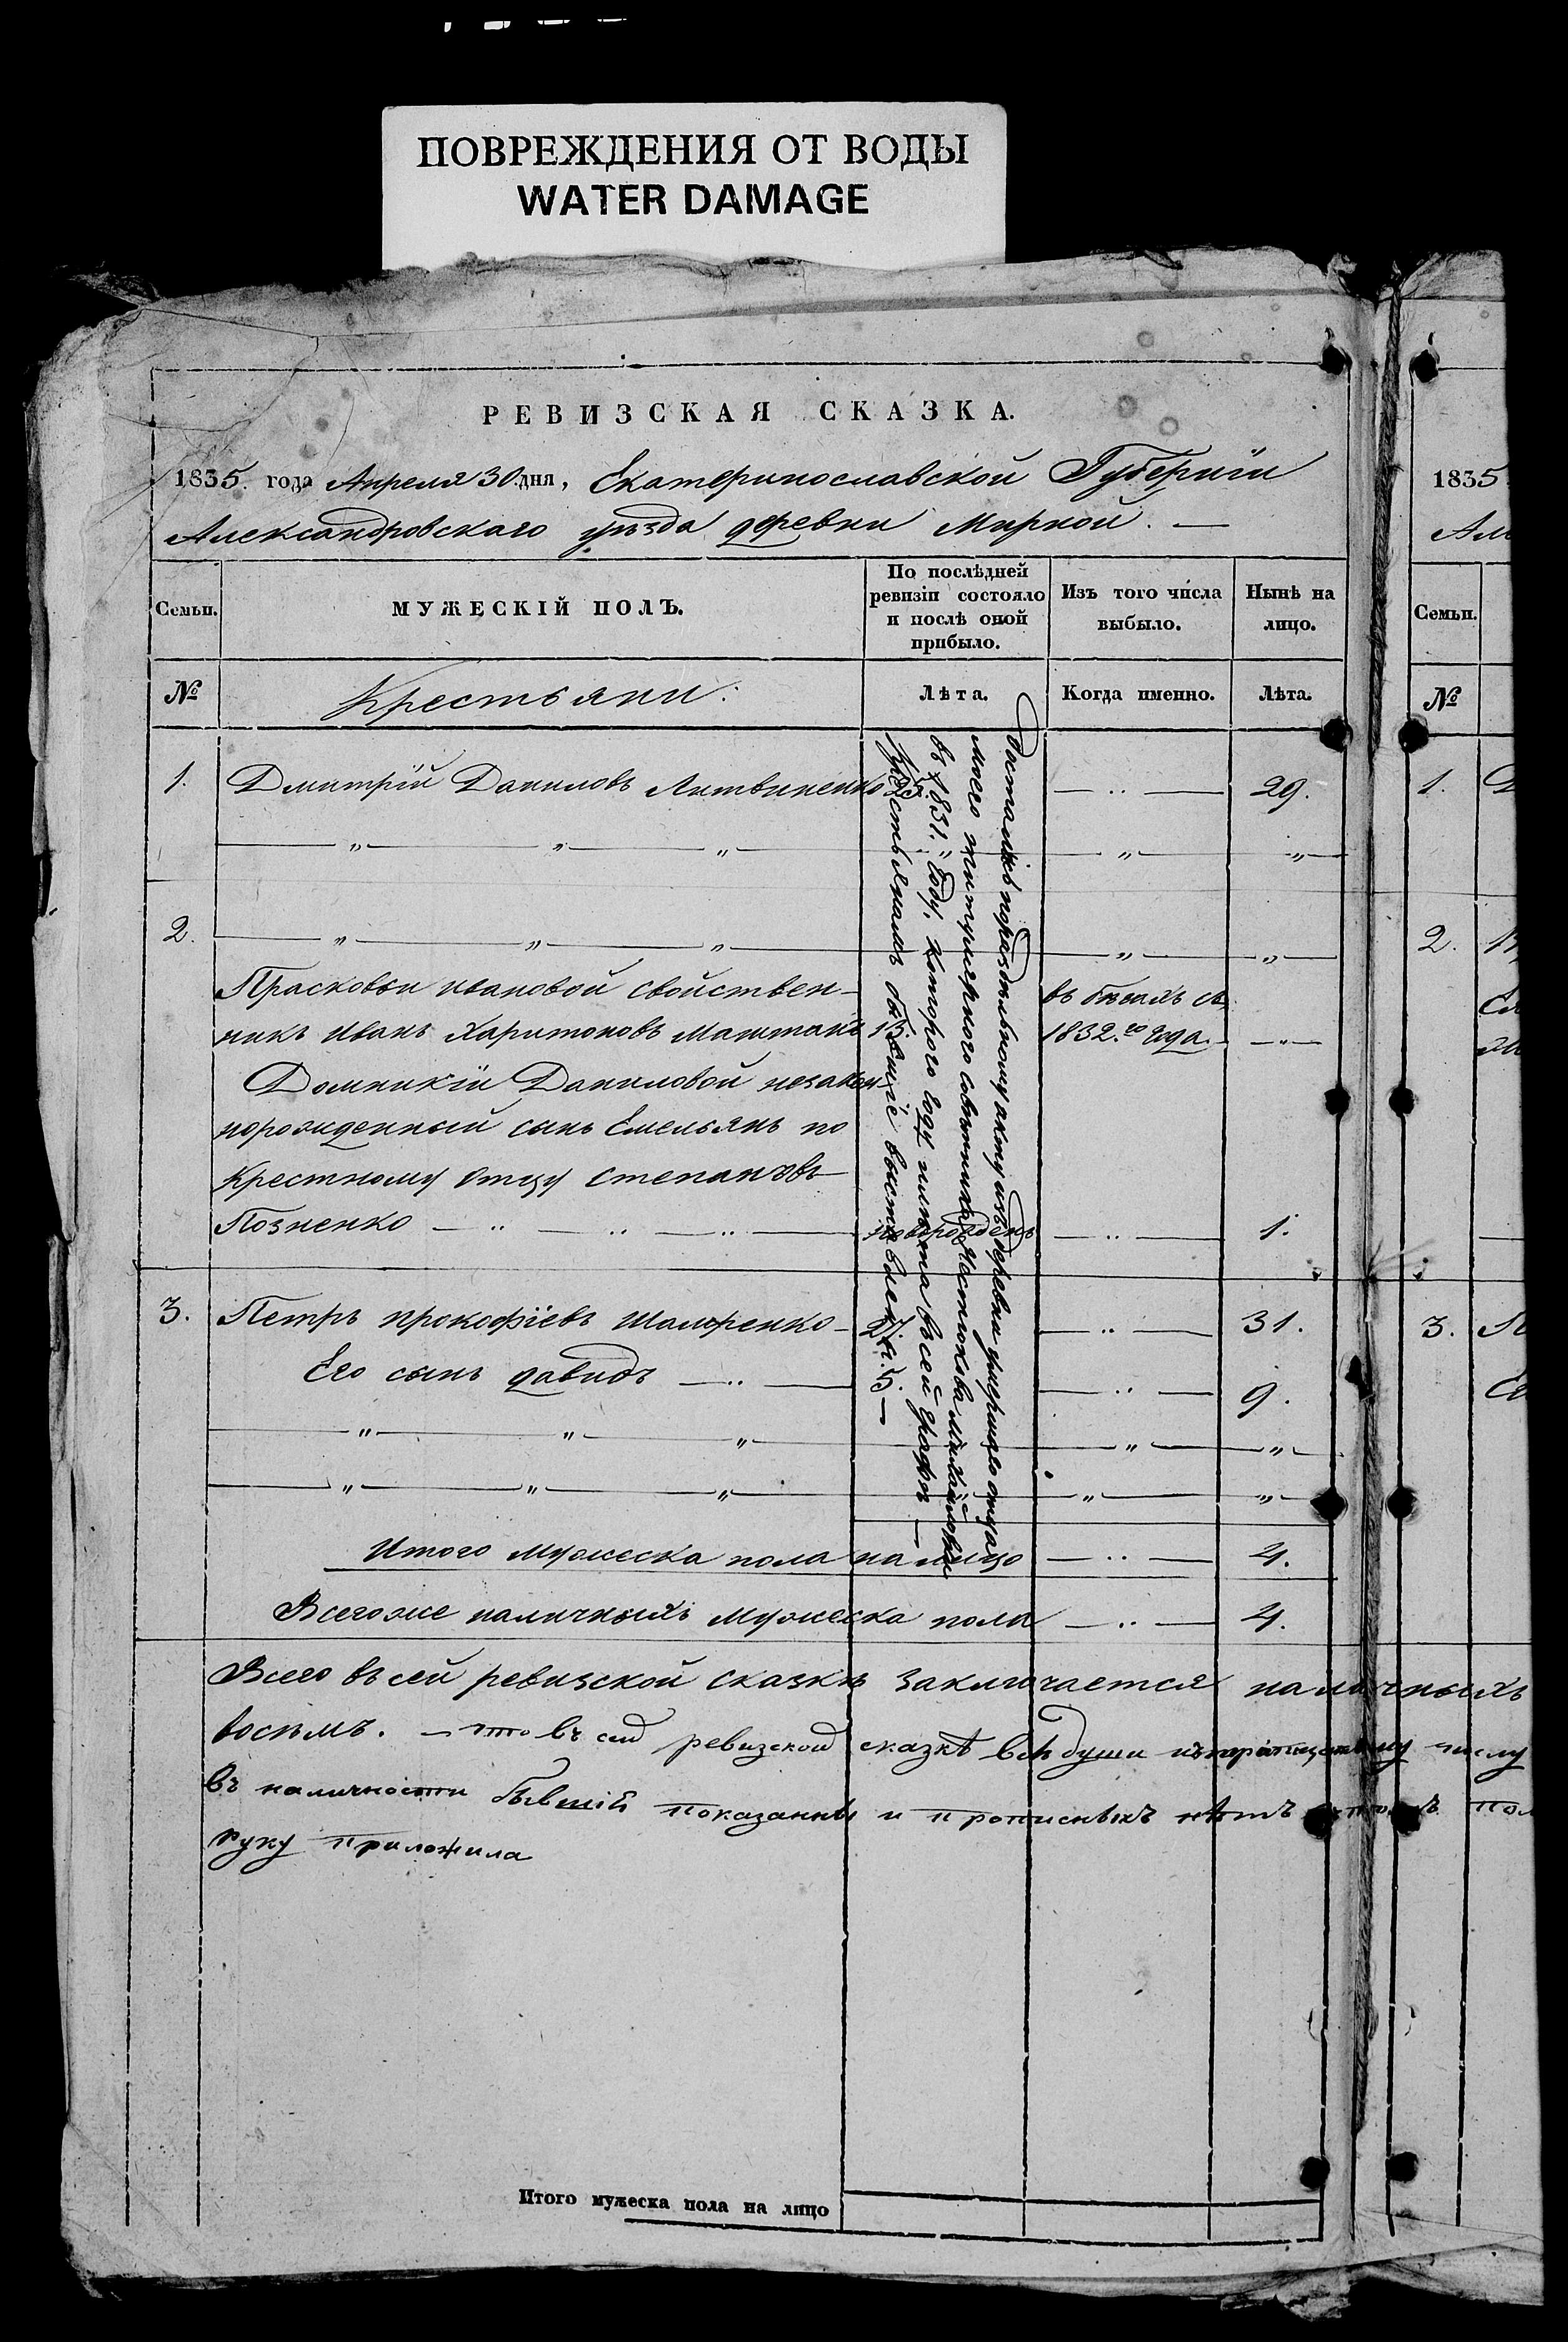 ПОВРЕЖДЕНИЯ ОТ ВОДЫ
WATER DAMAGE
РЕВИЗСКАЯ СКАЗКА.
1835. года Апреля 30. дня, Екатеринославской Губернiи
Александровскаго уѣзда деревни Мирной. —
Семьи.
МУЖЕСКIЙ ПОЛЪ.
По послѣдней
ревизiи состояло
и послѣ оной
прибыло.
Изъ того числа
выбыло.
Нынѣ на
лицо.
№
Крестьяни:
Лѣта.
Когда именно.
Лѣта.
1. Дмитрiй Даниловъ Литвиненко — 29.
2.
Прасковьи ивановой свойствен-
никъ Иванъ Харитоновъ Маштакъ 15. въ бѣгахъ съ
1832.го года.
Домникiи Даниловой незакон-
норожденный сынъ Емельянъ по
крестному отцу Степановъ
Позненко — новорожденъ — 1.
3. Петръ Прокофiевъ Шаморенко — 27. — 31.
Его сынъ Давидъ — 5. — 9.
Достались по раздѣльному акту изъ деревни умершаго отца
моего титулярного совѣтника Михайловки
въ 1831. Году, которого году и лѣта въ сей графѣ
Крестьянамъ
Итого мужеска пола на лицо — 4.
Всегоже наличныхъ мужеска пола — 4.
Всего въ сей ревизской сказкѣ заключается наличныхъ
восѣмъ. — что въ сей ревизской сказкѣ всѣ души числу
въ наличности бывшiй показанны и прописныхъ нѣтъ
руку приложила
Итого мужеска пола на лицо
1835
Семьи.
№
1.
2.
3.